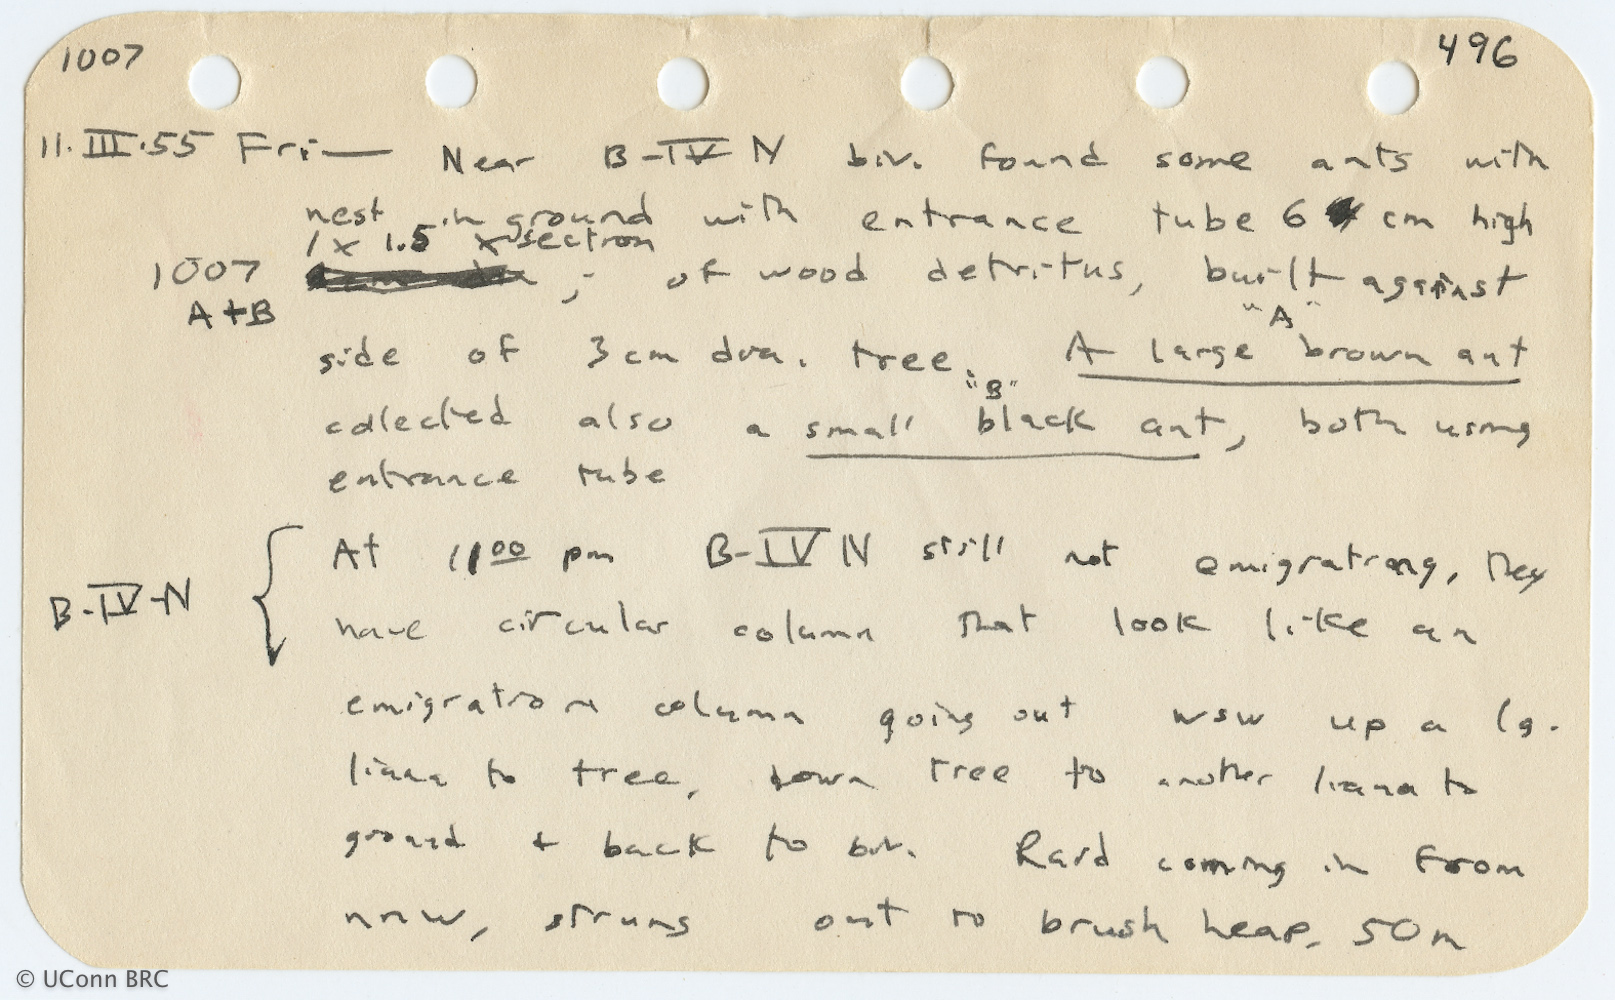 1007 496
11.III.55 Fri— Near B-IV N biv. found some ants with
nest in ground with entrance tube 6 cm high
1 x 1.5 x section
1007 ; of wood detritus, built against
A+B
"A"
side of 3 cm dia. tree. A large brown ant
"B"
collected also a small black ant, both using
entrance tube
At 11 00 pm B-IV N still not emigrating, They
B-IV-N
have circular column that look like an
emigration column going out wsw up a lg.
liana to tree, down tree to another liana to
ground + back to biv. Raid coming in from
nnw, strung out to brush heap, 50m
© UConn BRC